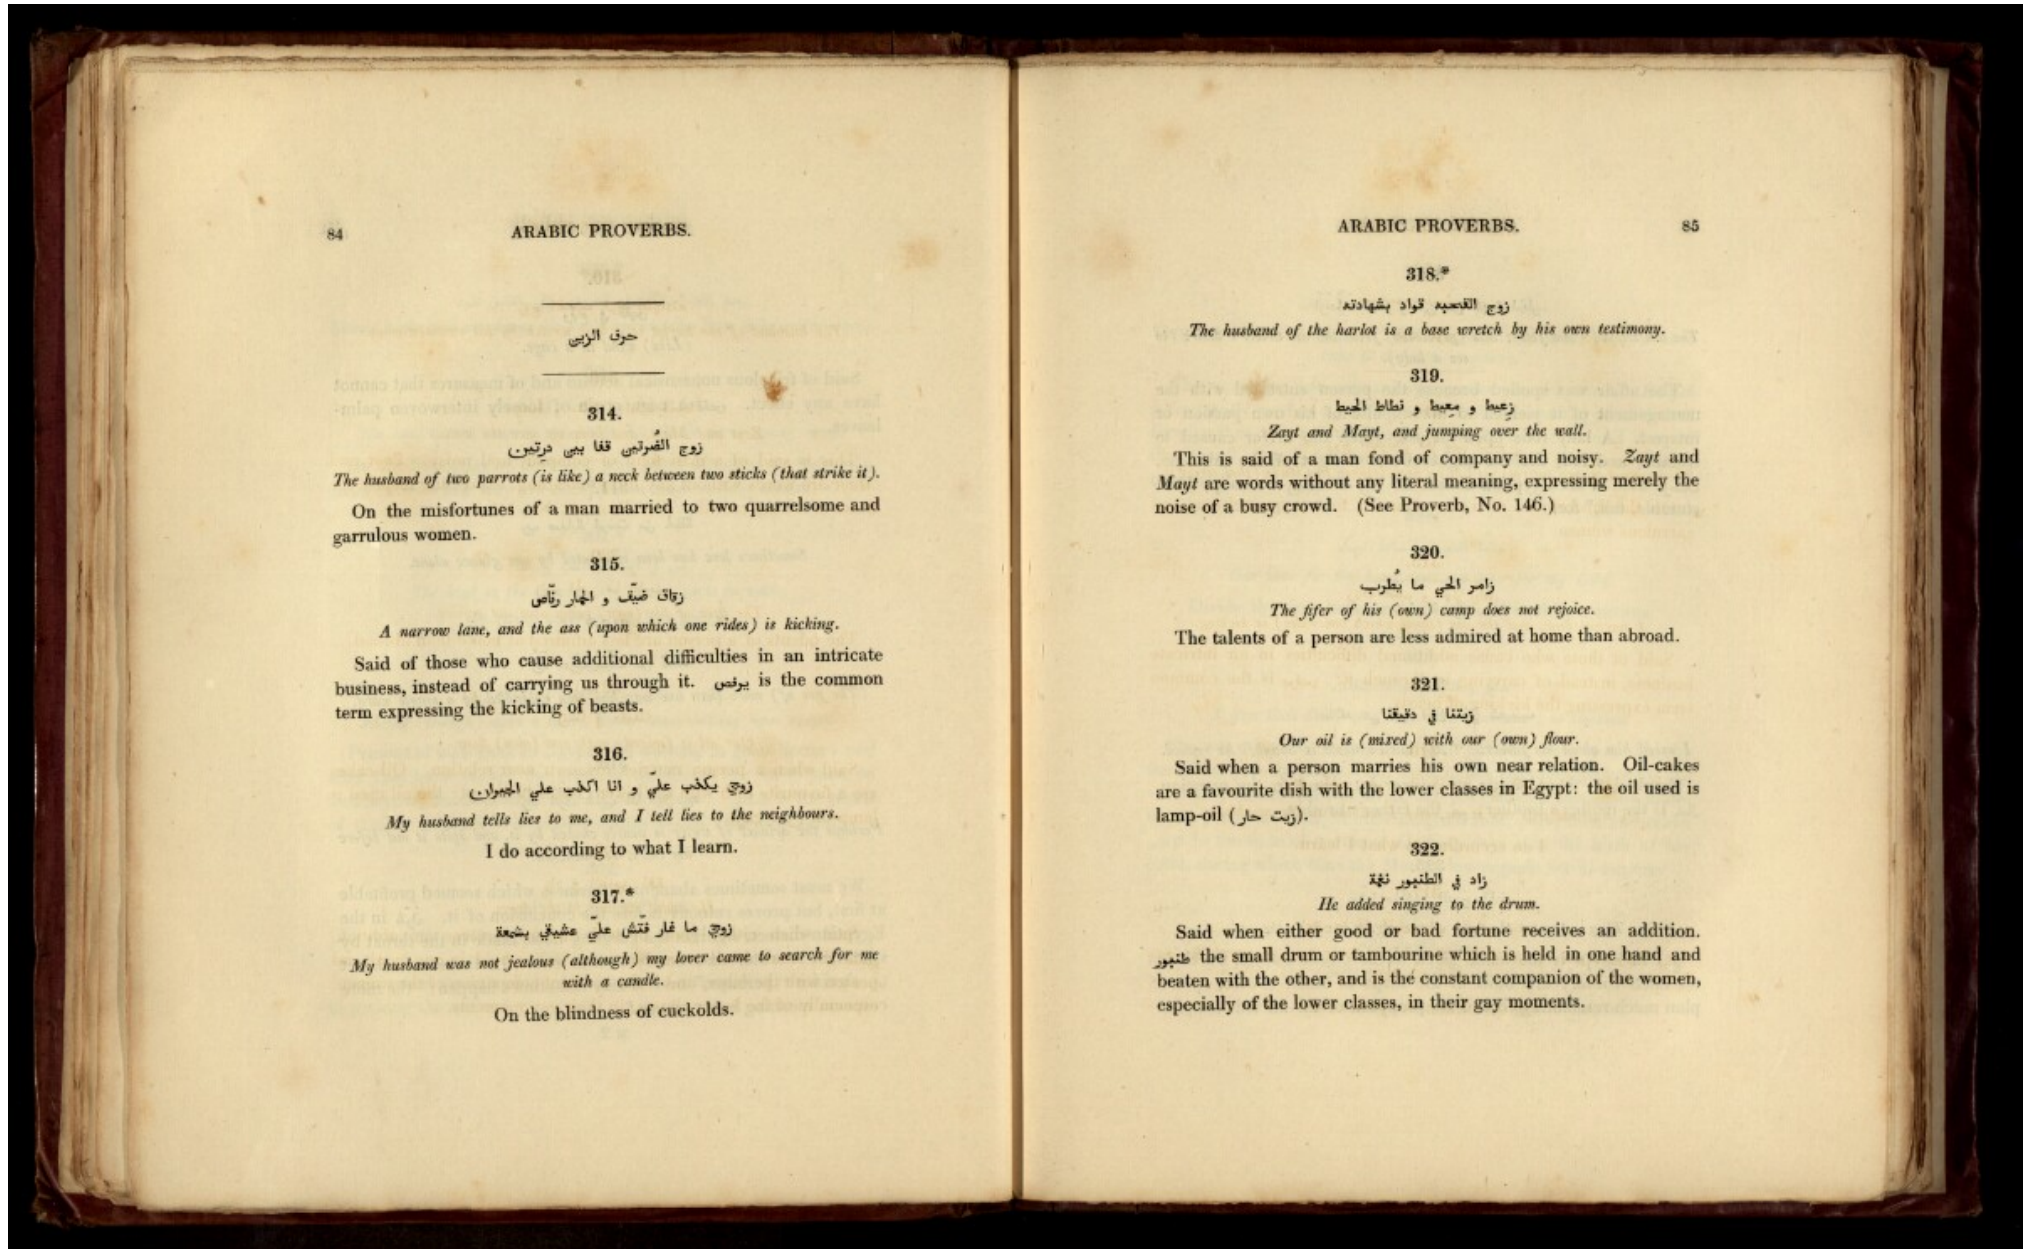 84
ARABIC PROVERBS.
حرف الزين
314.
زوج الضُرتين قفا بين درتين
The husband of two parrots (is like) a neck between two sticks (that strike it).
On the misfortunes of a man married to two quarrelsome and
garrulous women.
315.
زقاق ضيّف و الحمار رفّاص
A narrow lane, and the ass (upon which one rides) is kicking.
Said of those who cause additional difficulties in an intricate
business, instead of carrying us through it. يرفص is the common
term expressing the kicking of beasts.
316.
زوجي يكذب عليّ و انا اكذب علي الجيران
My husband tells lies to me, and I tell lies to the neighbours.
I do according to what I learn.
317.*
زوجي ما غار فتّش عليّ عشيقي بشمعة
My husband was not jealous (although) my lover came to search for me
with a candle.
On the blindness of cuckolds.
ARABIC PROVERBS.
85
318.*
زوج القحبه قواد بشهادته
The husband of the harlot is a base wretch by his own testimony.
319.
زعيط و معيط و نطاط الحيط
Zayt and Mayt, and jumping over the wall.
This is said of a man fond of company and noisy. Zayt and
Mayt are words without any literal meaning, expressing merely the
noise of a busy crowd. (See Proverb, No. 146.)
320.
زامر الحي ما يُطرب
The fifer of his (own) camp does not rejoice.
The talents of a person are less admired at home than abroad.
321.
زيتنا في دقيقنا
Our oil is (mixed) with our (own) flour.
Said when a person marries his own near relation. Oil-cakes
are a favourite dish with the lower classes in Egypt: the oil used is
lamp-oil (زيت حار).
322.
زاد في الطنبور نغمة
He added singing to the drum.
Said when either good or bad fortune receives an addition.
طنبور the small drum or tambourine which is held in one hand and
beaten with the other, and is the constant companion of the women,
especially of the lower classes, in their gay moments.